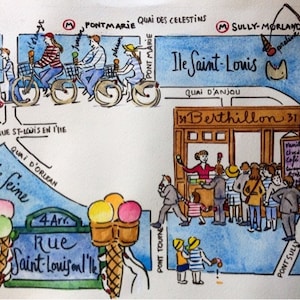 M PONT MARIE
QUAI DES CELESTINS
M SULLY-MORLAND
PONT MARIE
Ile Saint-Louis
QUAI D'ANJOU
RUE ST-LOUIS EN L'ILE
31 Berthillon 31
QUAI D'ORLEAN
Seine
4 Arr.
Rue
Saint-Louis en l'Ile
PONT TOURN
PONT SUL